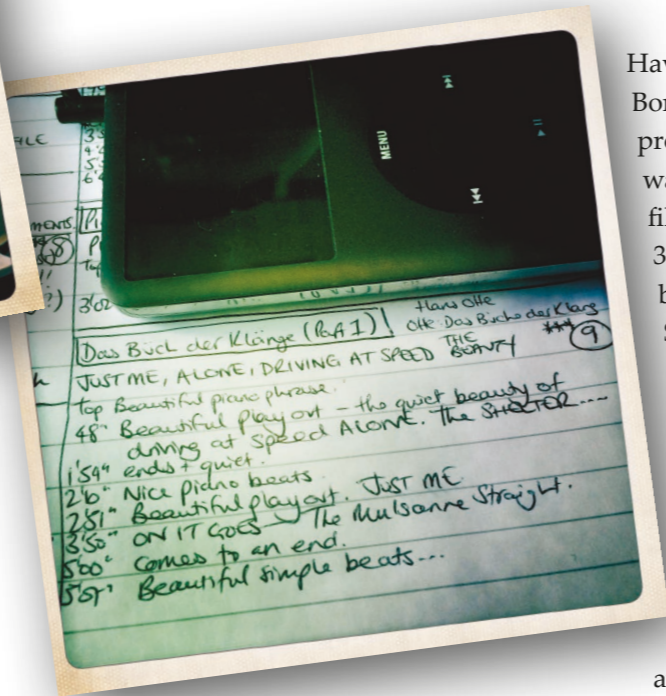 Hav
Bor
pro
wa
fil
3
b
a
MENU
ALE
MENTS
8
!!
?)
3'02
Das Buch der Klänge (Part 1)!
Hans Otte
Otte: Das Buch der Klang
*** 9
JUST ME, ALONE, DRIVING AT SPEED THE BEAUTY
top Beautiful piano phrase.
48" Beautiful play out – the quiet beauty of
driving at speed ALONE. The
1'54" ends + quiet.
2'6" Nice piano beats.
2'51" Beautiful play out. JUST ME
3'50" ON IT GOES – The Mulsanne Straight.
5'00" comes to an end.
5'57" Beautiful simple beats...